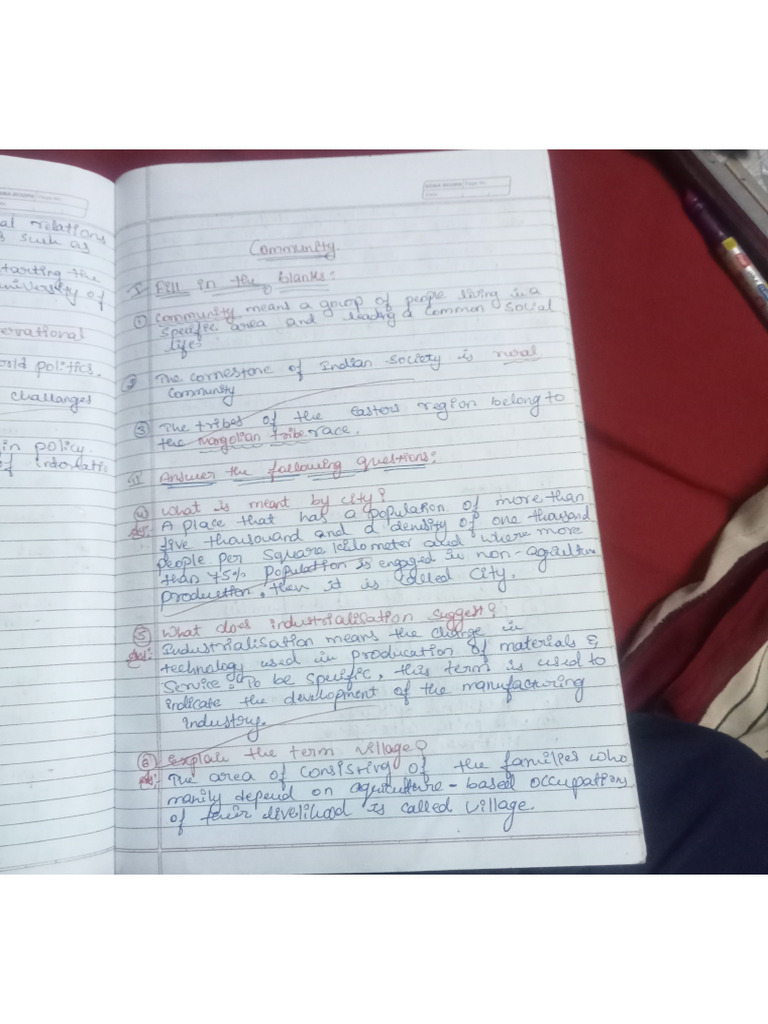 al relations
s such as
starting the
university of
ernational
orld politics.
challanges
in policy.
Community.
I Fill in the blanks:
① Community means a gorop of people living in a
specific area and leading a common social
life.
② The cornestone of Indian society is rural
Community
③ The tribes of the Eastern region belong to
the Mangolian tribe race.
II Answer the following questions:
④ What is meant by city?
Ans: A place that has a population of more than
five thousound and a density of one thousand
people per square kilometer and where more
than 75% population is engaged in non-agricultre
production, then it is called city.
⑤ What does industrialisation suggest?
Ans: Industrialisation means the change in
technology used in producation of materials &
Service. To be specific, this term is used to
indicate the development of the manufacturing
industry.
⑥ Explain the term village?
Ans: The area of consisting of the familes who
manily depend on agriculture-based occupation
of their livelihood is called village.